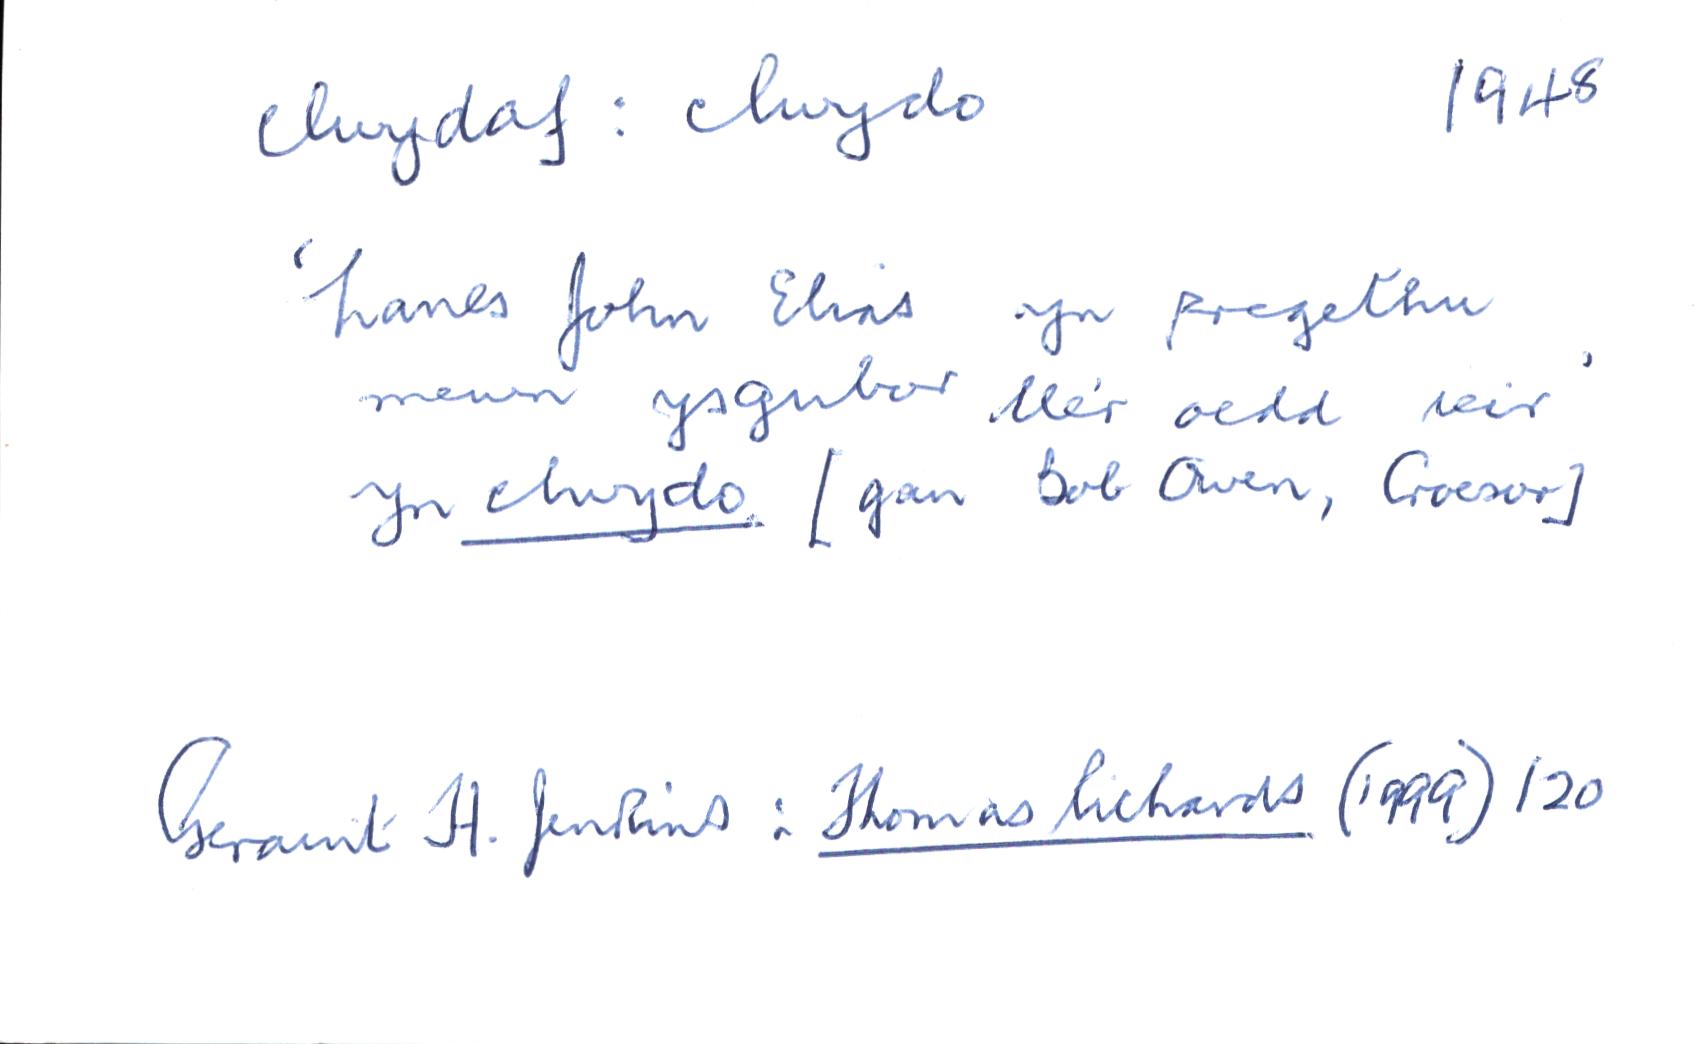 clwydaf : clwydo 1948
'hanes John Elias yn pregethu
mewn ysgubor lle'r oedd ieir'
yn clwydo. [gan Bob Owen, Croesor]
Geraint H. Jenkins : Thomas Richards (1999) 120